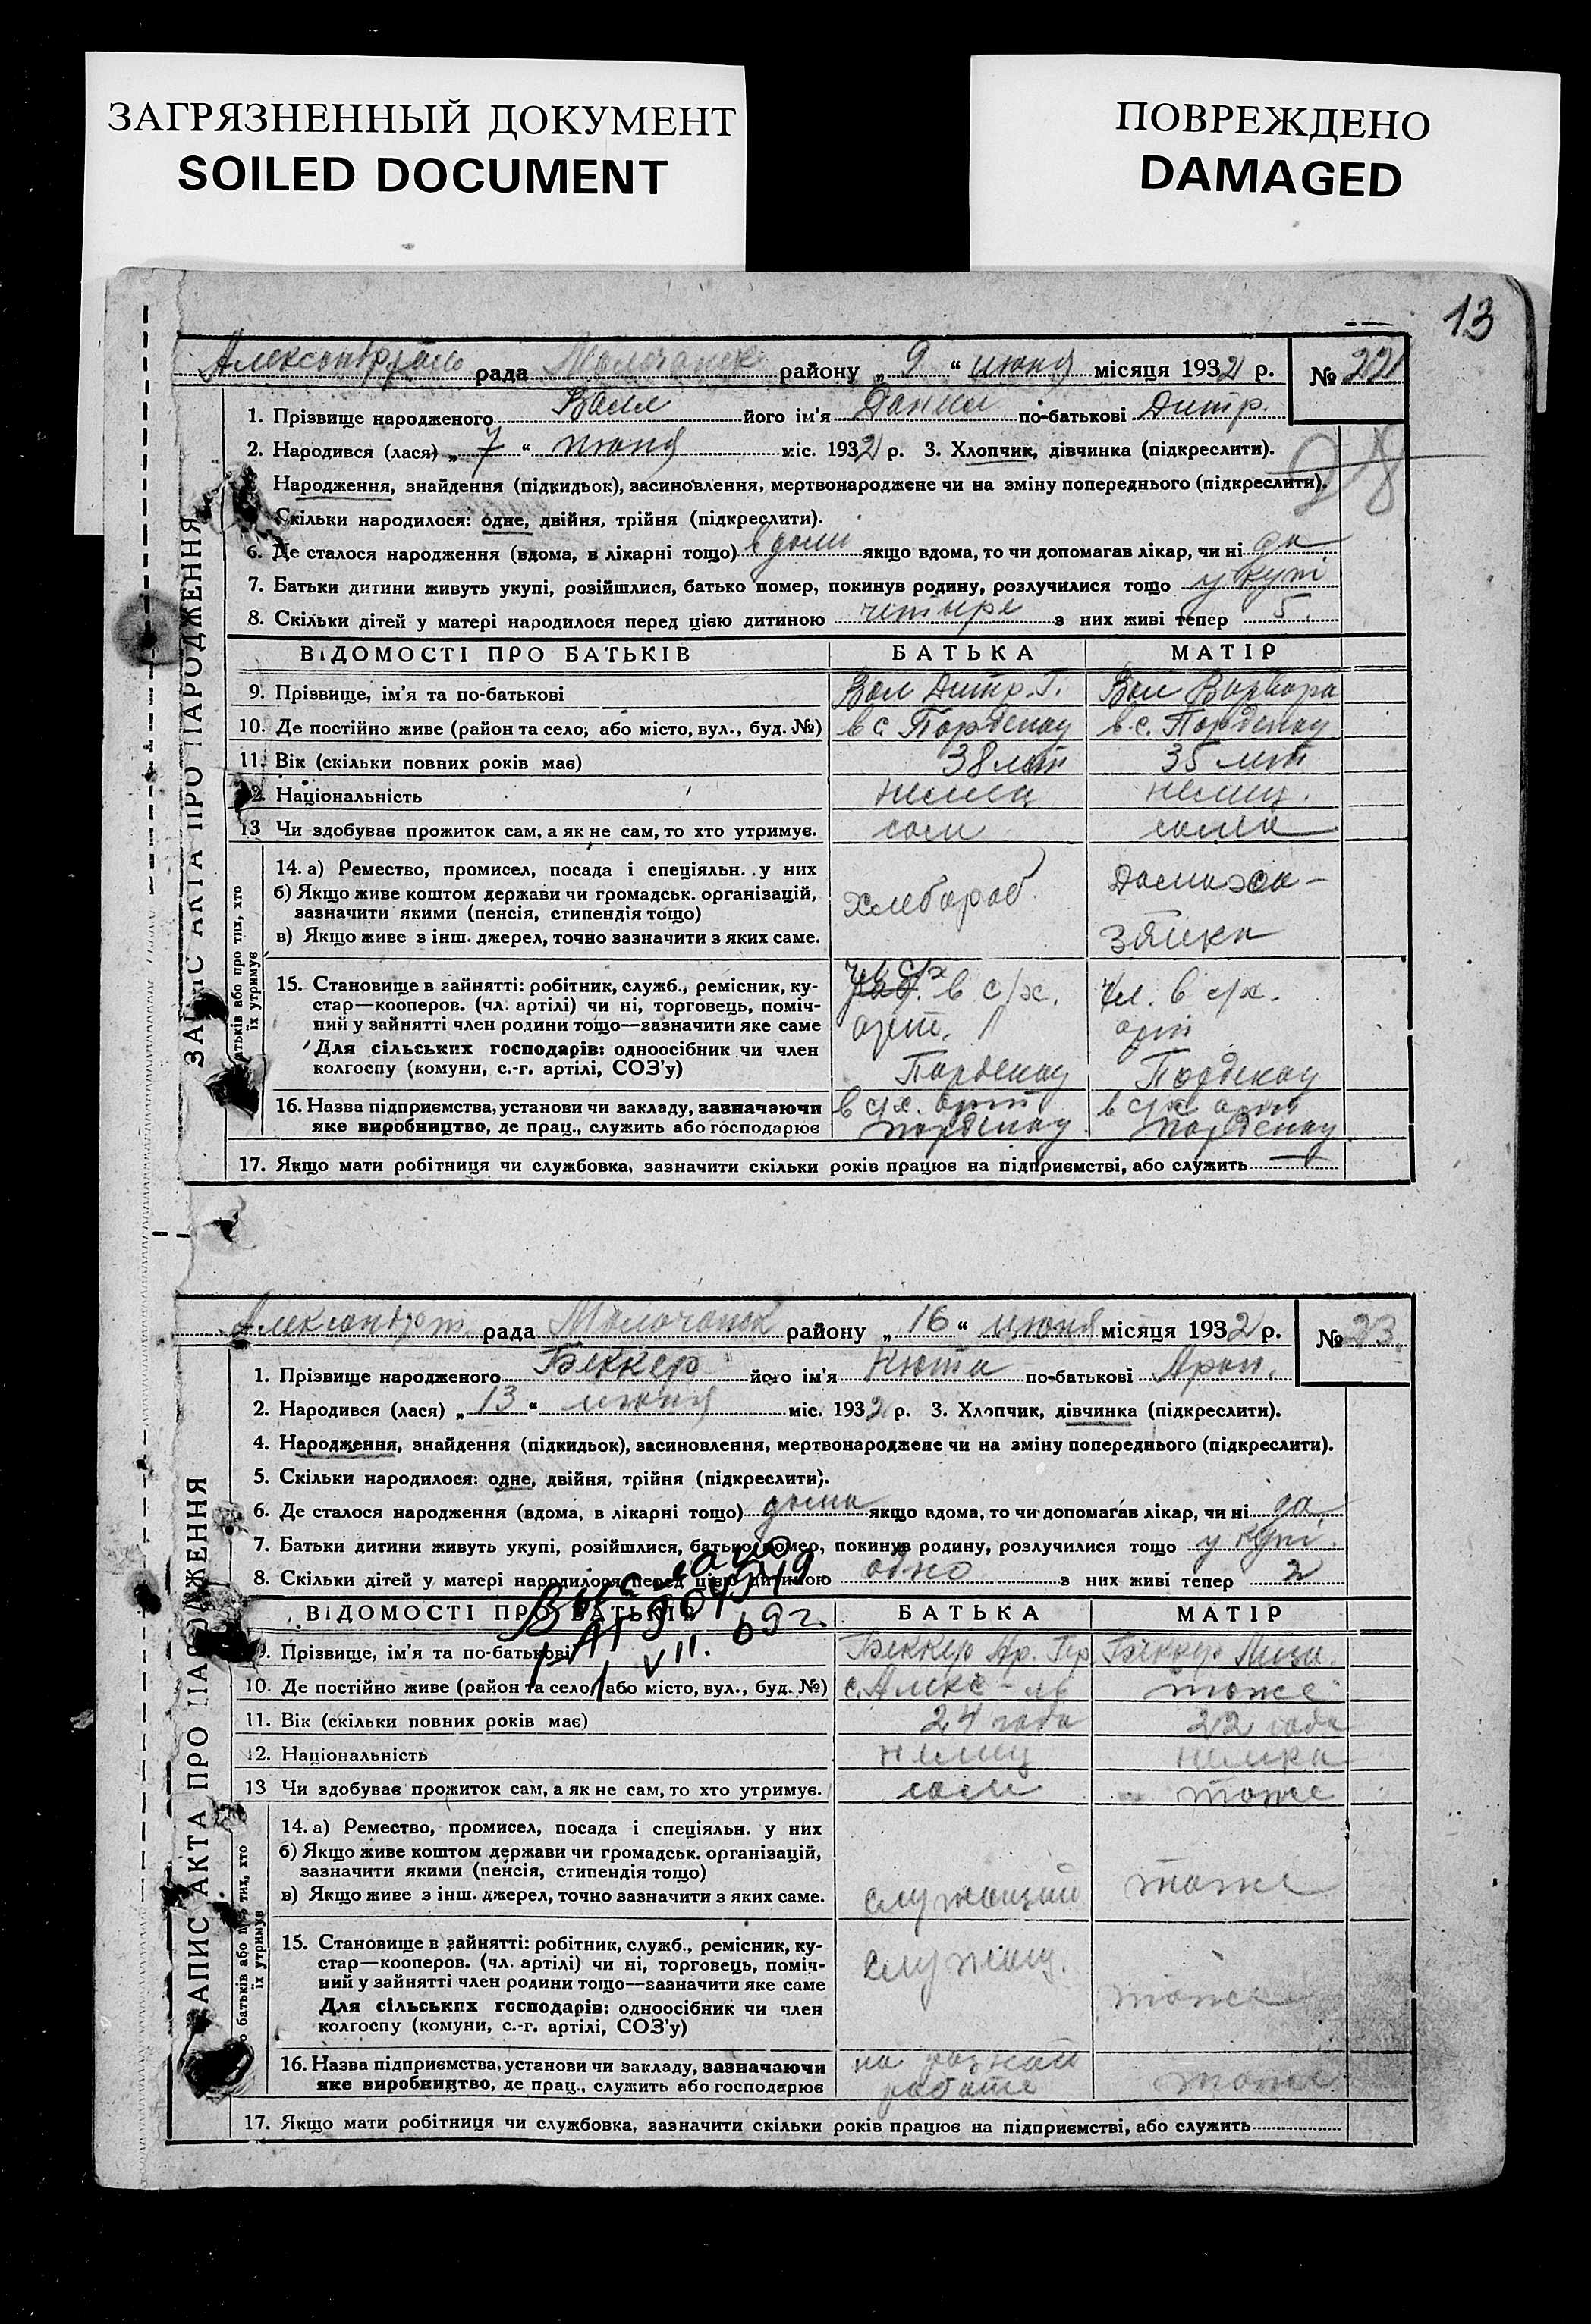 ЗАГРЯЗНЕННЫЙ ДОКУМЕНТ
SOILED DOCUMENT
ПОВРЕЖДЕНО
DAMAGED
13
рада Молочанск району „ 9 “ июня місяця 1932 р. № 22
1. Прізвище народженого Валл його ім'я Данил по-батькові Дитр.
2. Народився (лася) „ 7 “ июня міс. 1932 р. 3. Хлопчик, дівчинка (підкреслити).
Народження, знайдення (підкидьок), засиновлення, мертвонароджене чи на зміну попереднього (підкреслити).
28
Скільки народилося: одне, двійня, трійня (підкреслити).
6. Де сталося народження (вдома, в лікарні тощо) в доми якщо вдома, то чи допомагав лікар, чи ні да
7. Батьки дитини живуть укупі, розійшлися, батько помер, покинув родину, розлучилися тощо у купі
8. Скільки дітей у матері народилося перед цією дитиною четыре з них живі тепер 5.
ЗАПИС АКТА ПРО НАРОДЖЕННЯ
ВІДОМОСТІ ПРО БАТЬКІВ БАТЬКА МАТІР
9. Прізвище, ім'я та по-батькові Вал Дитр. Г. Вал Варвара
10. Де постійно живе (район та село, або місто, вул., буд. №) в с Парденау в. с. Парденау
11. Вік (скільки повних років має) 38 лет 35 лет
12. Національність немец немец.
13 Чи здобував прожиток сам, а як не сам, то хто утримує. сам сама
батьків або про тих, хто їх утримує
14. а) Ремество, промисел, посада і спеціяльн. у них
б) Якщо живе коштом держави чи громадськ. організацій,
зазначити якими (пенсія, стипендія тощо)
в) Якщо живе з інш. джерел, точно зазначити з яких саме.
хлебороб Домахо-
зяйка
15. Становище в зайнятті: робітник, служб., ремісник, ку-
стар—кооперов. (чл. артілі) чи ні, торговець, поміч-
ний у зайнятті член родини тощо—зазначити яке саме
Для сільських господарів: одноосібник чи член
колгоспу (комуни, с.-г. артілі, СОЗ'у)
чл с/х
в с/х. арт. Парденау
чл. в с/х. арт Парденау
16. Назва підприємства, установи чи закладу, зазначаючи
яке виробництво, де прац., служить або господарює
в с/х. арт Парденау
в с/х арт Парденау
17. Якщо мати робітниця чи службовка, зазначити скільки років працює на підприємстві, або служить —
Александрт рада Молочанск району „ 16 “ июня місяця 1932 р. № 23.
1. Прізвище народженого Беккер його ім'я Нюта по-батькові Арон.
2. Народився (лася) „ 13 “ июня міс. 1932 р. 3. Хлопчик, дівчинка (підкреслити).
4. Народження, знайдення (підкидьок), засиновлення, мертвонароджене чи на зміну попереднього (підкреслити).
5. Скільки народилося: одне, двійня, трійня (підкреслити).
6. Де сталося народження (вдома, в лікарні тощо) дома якщо вдома, то чи допомагав лікар, чи ні да
7. Батьки дитини живуть укупі, розійшлися, батько помер, покинув родину, розлучилися тощо у купі.
8. Скільки дітей у матері народилося перед цією дитиною одно з них живі тепер 2
VII. 69 г.
ЗАПИС АКТА ПРО НАРОДЖЕННЯ
ВІДОМОСТІ ПРО БАТЬКІВ БАТЬКА МАТІР
9. Прізвище, ім'я та по-батькові Беккер Ар. Беккер Лиза.
10. Де постійно живе (район та село, або місто, вул., буд. №) с. Алекс тоже
11. Вік (скільки повних років має) 24 года 22 года
12. Національність немец немка
13 Чи здобував прожиток сам, а як не сам, то хто утримує. сам тоже
батьків або про тих, хто їх утримує
14. а) Ремество, промисел, посада і спеціяльн. у них
б) Якщо живе коштом держави чи громадськ. організацій,
зазначити якими (пенсія, стипендія тощо)
в) Якщо живе з інш. джерел, точно зазначити з яких саме.
служащий тоже
15. Становище в зайнятті: робітник, служб., ремісник, ку-
стар—кооперов. (чл. артілі) чи ні, торговець, поміч-
ний у зайнятті член родини тощо—зазначити яке саме
Для сільських господарів: одноосібник чи член
колгоспу (комуни, с.-г. артілі, СОЗ'у)
служащ. тоже
16. Назва підприємства, установи чи закладу, зазначаючи
яке виробництво, де прац., служить або господарює
на разной работе тоже
17. Якщо мати робітниця чи службовка, зазначити скільки років працює на підприємстві, або служить